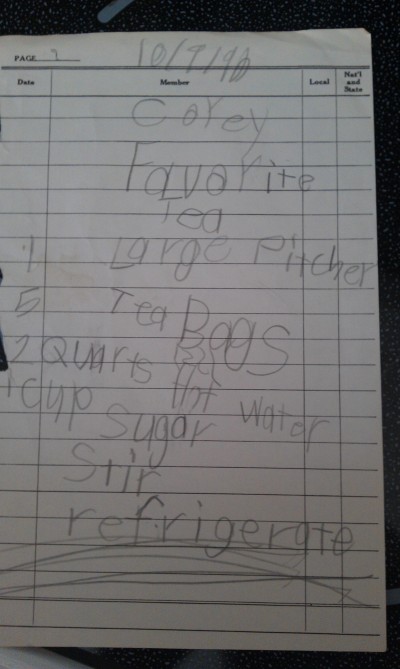 PAGE 1 10/7/90
Date Member Local Nat'l and State
Corey
Favorite
Tea
1 Large Pitcher
5 Tea Bags
2 Quarts
Hot Water
1 Cup Sugar
Stir
refrigerate